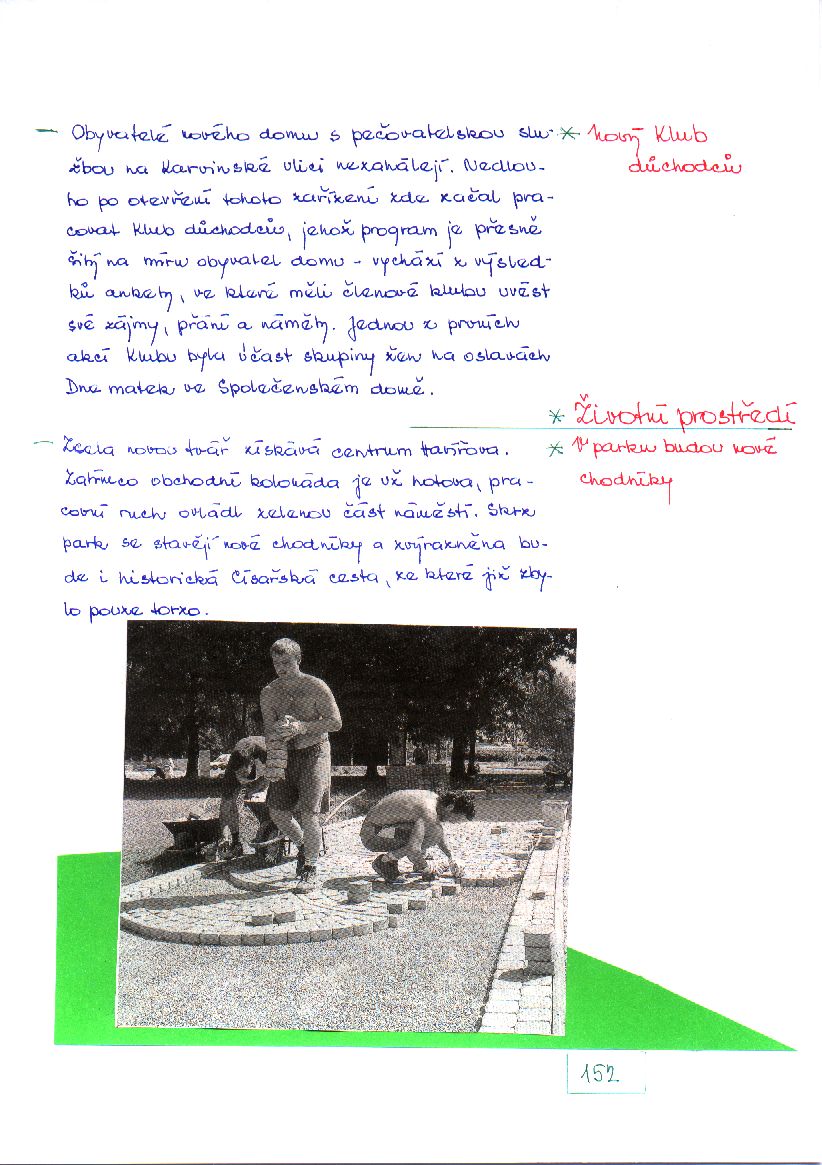 – Obyvatelé nového domu s pečovatelskou slu- * Nový Klub
žbou na Karvinské ulici nezahálejí. Nedlou- důchodců
ho po otevření tohoto zařízení zde začal pra-
covat Klub důchodců, jehož program je přesně
šitý na míru obyvatel domu – vychází z výsled-
ků ankety, ve které měli členové klubu uvést
své zájmy, přání a náměty. Jednou z prvních
akcí Klubu byla účast skupiny žen na oslavách
Dne matek ve Společenském domě.
* Životní prostředí
– Zcela novou tvář získává centrum Havířova. * V parku budou nové
Zatímco obchodní kolonáda je už hotova, pra- chodníky
covní ruch ovládl zelenou část náměstí. Skrz
park se stavějí nové chodníky a zvýrazněna bu-
de i historická Císařská cesta, ze které již zby-
lo pouze torzo.
152